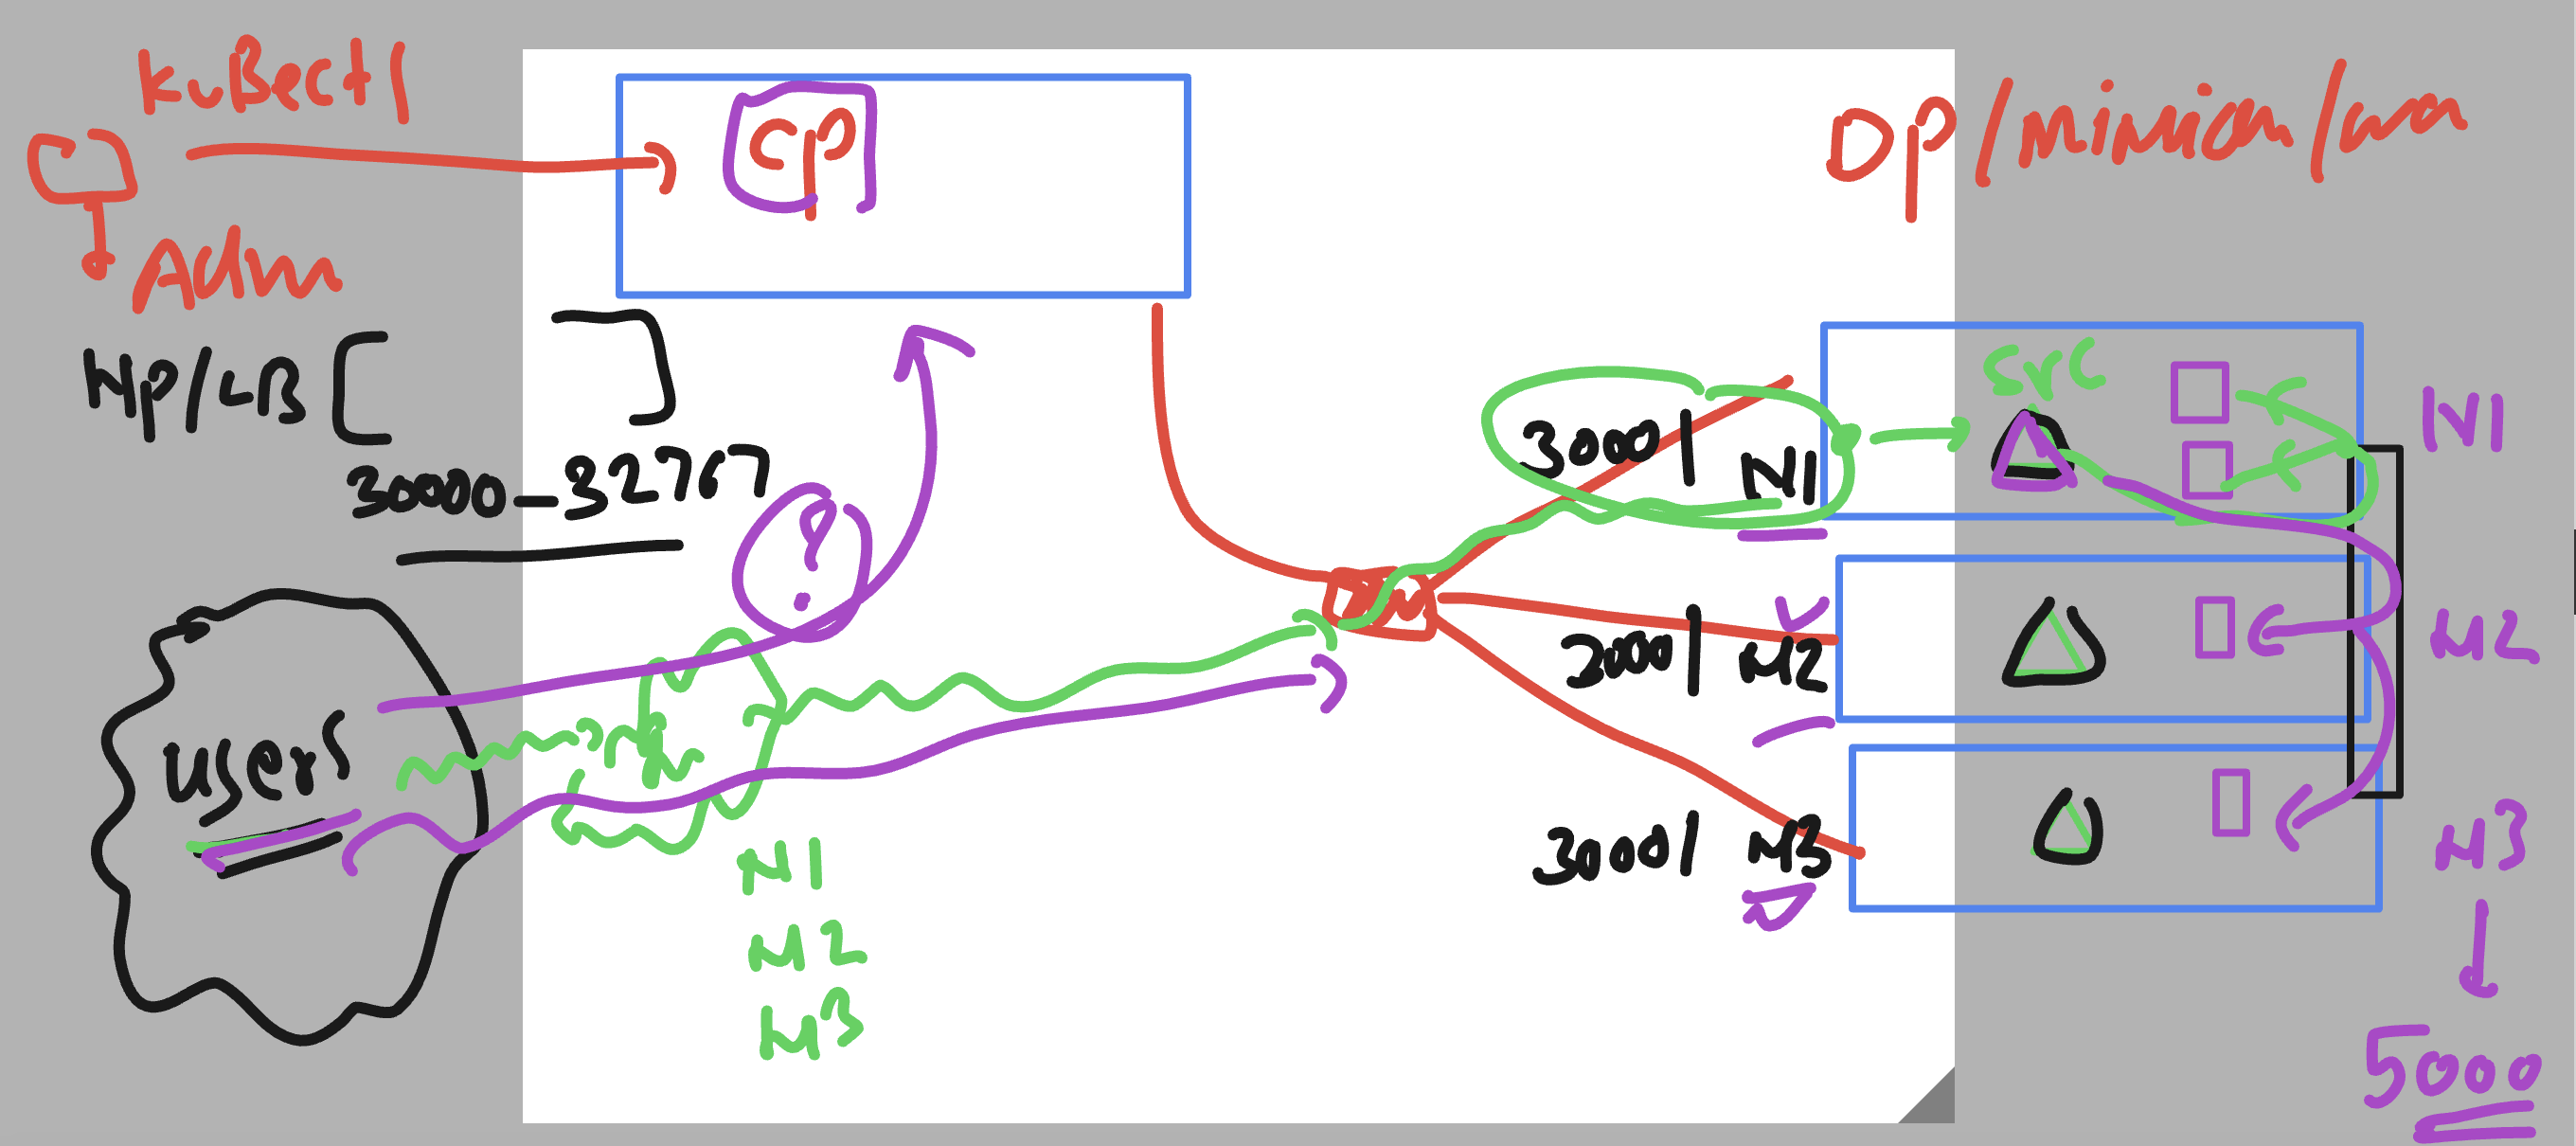 KuBectl
CP
DP/minion/wn
Adm
NP/LB [ ]
30000-32767
?
users
N1
N2
N3
30001 N1
30001 N2
30001 N3
svc
N1
N2
N3
5000